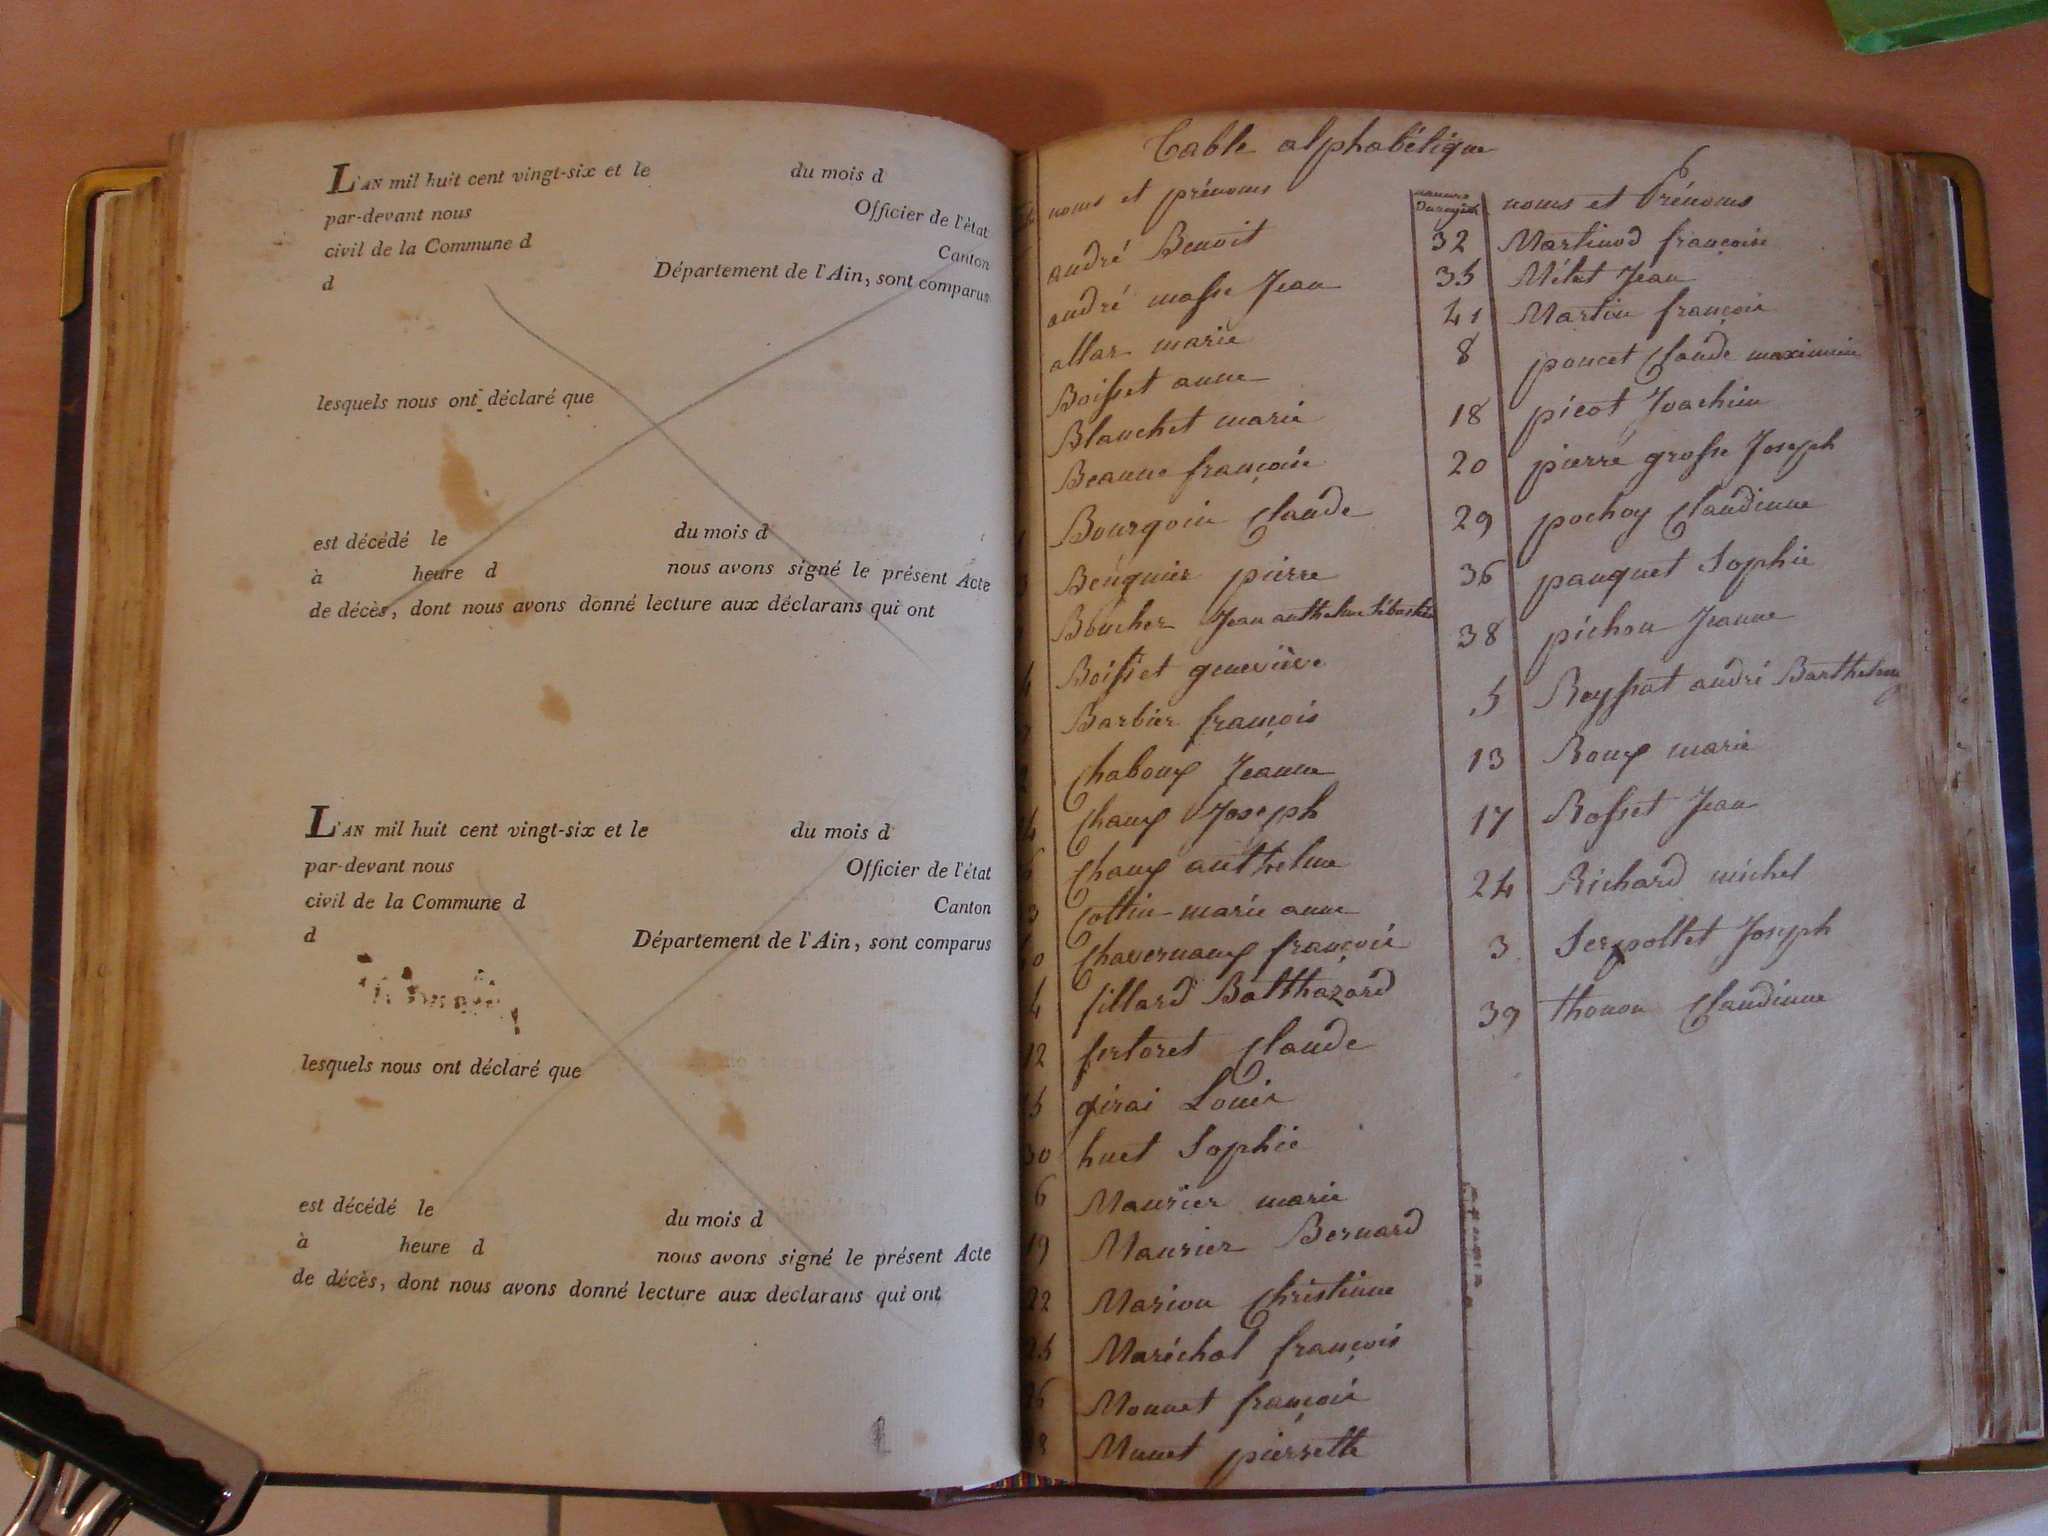 L'AN mil huit cent vingt-six et le du mois d
par-devant nous Officier de l'état
civil de la Commune d Canton
d Département de l'Ain, sont comparus
lesquels nous ont déclaré que
est décédé le du mois d
à heure d nous avons signé le présent Acte
de décès, dont nous avons donné lecture aux déclarans qui ont
L'AN mil huit cent vingt-six et le du mois d
par-devant nous Officier de l'état
civil de la Commune d Canton
d Département de l'Ain, sont comparus
lesquels nous ont déclaré que
est décédé le du mois d
à heure d nous avons signé le présent Acte
de décès, dont nous avons donné lecture aux declarans qui ont
Table alphabétique
noms et prénoms
andré Benoit
andré masse Jean
allar marie
Boisset anne
Blanchet marie
Beanne françoise
Bourgoin Claude
pierre
Boucher Jean anthelme
Boisset geneviève
Barbier françois
Chaboux Jeanne
Chaux Joseph
Chaux anthelme
Cottin marie anne
Chavernaux
fillard Balthazard
12 fertoret Claude
girai Louis
30 huet Sophie
6 Maurier marie
19 Maurier Bernard
22 Marion Christinne
25 Maréchal françois
Monnet
Munet pierrette
noms et Prénoms
32 Martinod françoise
35 Métet Jean
41 Martin
8 poncet Claude
18 picot Joachim
20 pierre grosse Joseph
29 pochoy Claudinne
36 pauquet Sophie
38 pichon Jeanne
5 Reyssat andré Barthelemy
13 Roux marie
17 Rosset Jean
24 Richard michel
3 Serpollet Joseph
39 thonon Claudinne